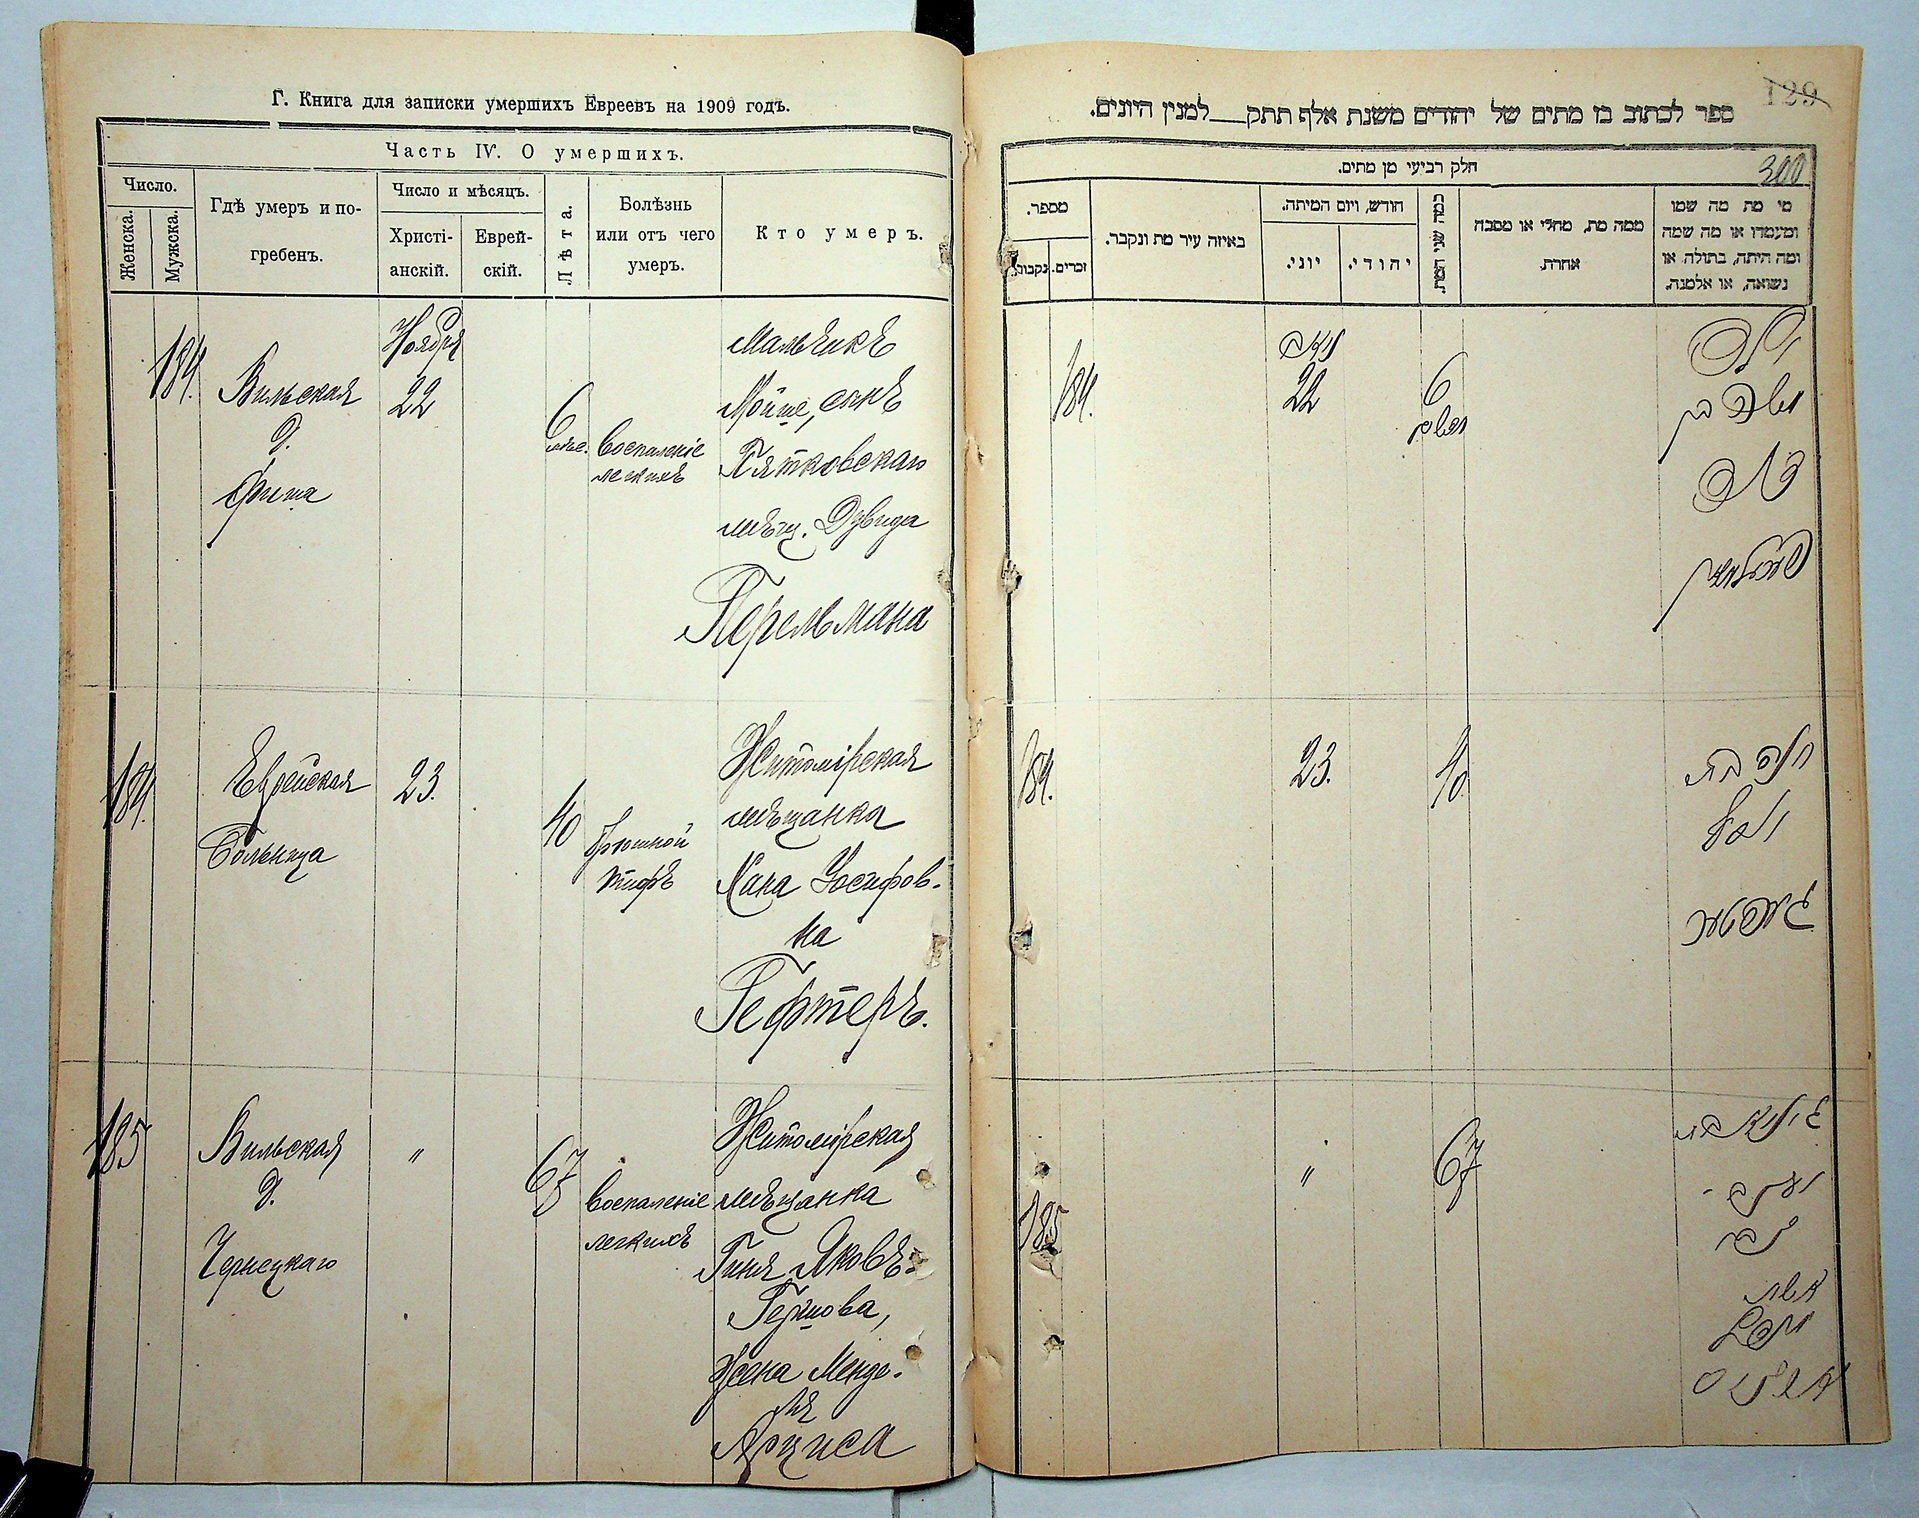 Г. Книга для записки умершихъ Евреевъ на 1909 годъ.
Часть IV. О умершихъ.
Число.
Женска.
Мужска.
Гдѣ умеръ и по-
гребенъ.
Число и мѣсяцъ.
Христі-
анскій.
Еврей-
скій.
Лѣта.
Болѣзнь
или отъ чего
умеръ.
Кто умеръ.
184.
Вильская
д.
Фиша
Ноября
22
6
мѣс.
воспаленіе
легкихъ
Мальчикъ
Мойше, сынъ
Пятковскаго
мѣщ. Дувида
Перельмана
184.
Еврейская
больница
23.
40
брюшной
тифъ
Житомірская
мѣщанка
Хана Іосифов-
на
Гефтеръ.
185
Вильская
д.
Чернецкаго
"
67
воспаленіе
легкихъ
Житомірская
мѣщанка
Гиня Яковъ-
Гершова,
Жена Менде-
ля
Арциса
129
ספר לכתוב בו מתים של יהודים משנת אלף תתק למנין היונים.
300
חלק רביעי מן מתים.
מספר.
זכרים.
נקבות.
באיזה עיר מת ונקבר.
חודש, ויום המיתה.
יוני.
יהודי.
כמה שני המת.
ממה מת, מחלי או מסבה
אחרת.
מי מת מה שמו
ומעמדו או מה שמה
ומה היתה, בתולה או
נשואה, או אלמנה.
184.
22
6
משה בן
דוד
פערעלמאן
184.
23.
40
חנה בת
יוסף
געפטער
185
"
67
גיניא בת
יעקב -
צבי
אשת